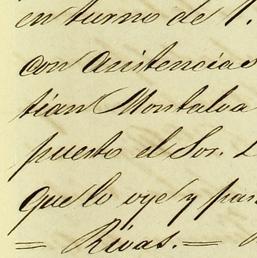 en turno de
con asistencia
tian Montalva
puesto el Sor.
que lo oye y
= Rivas. =